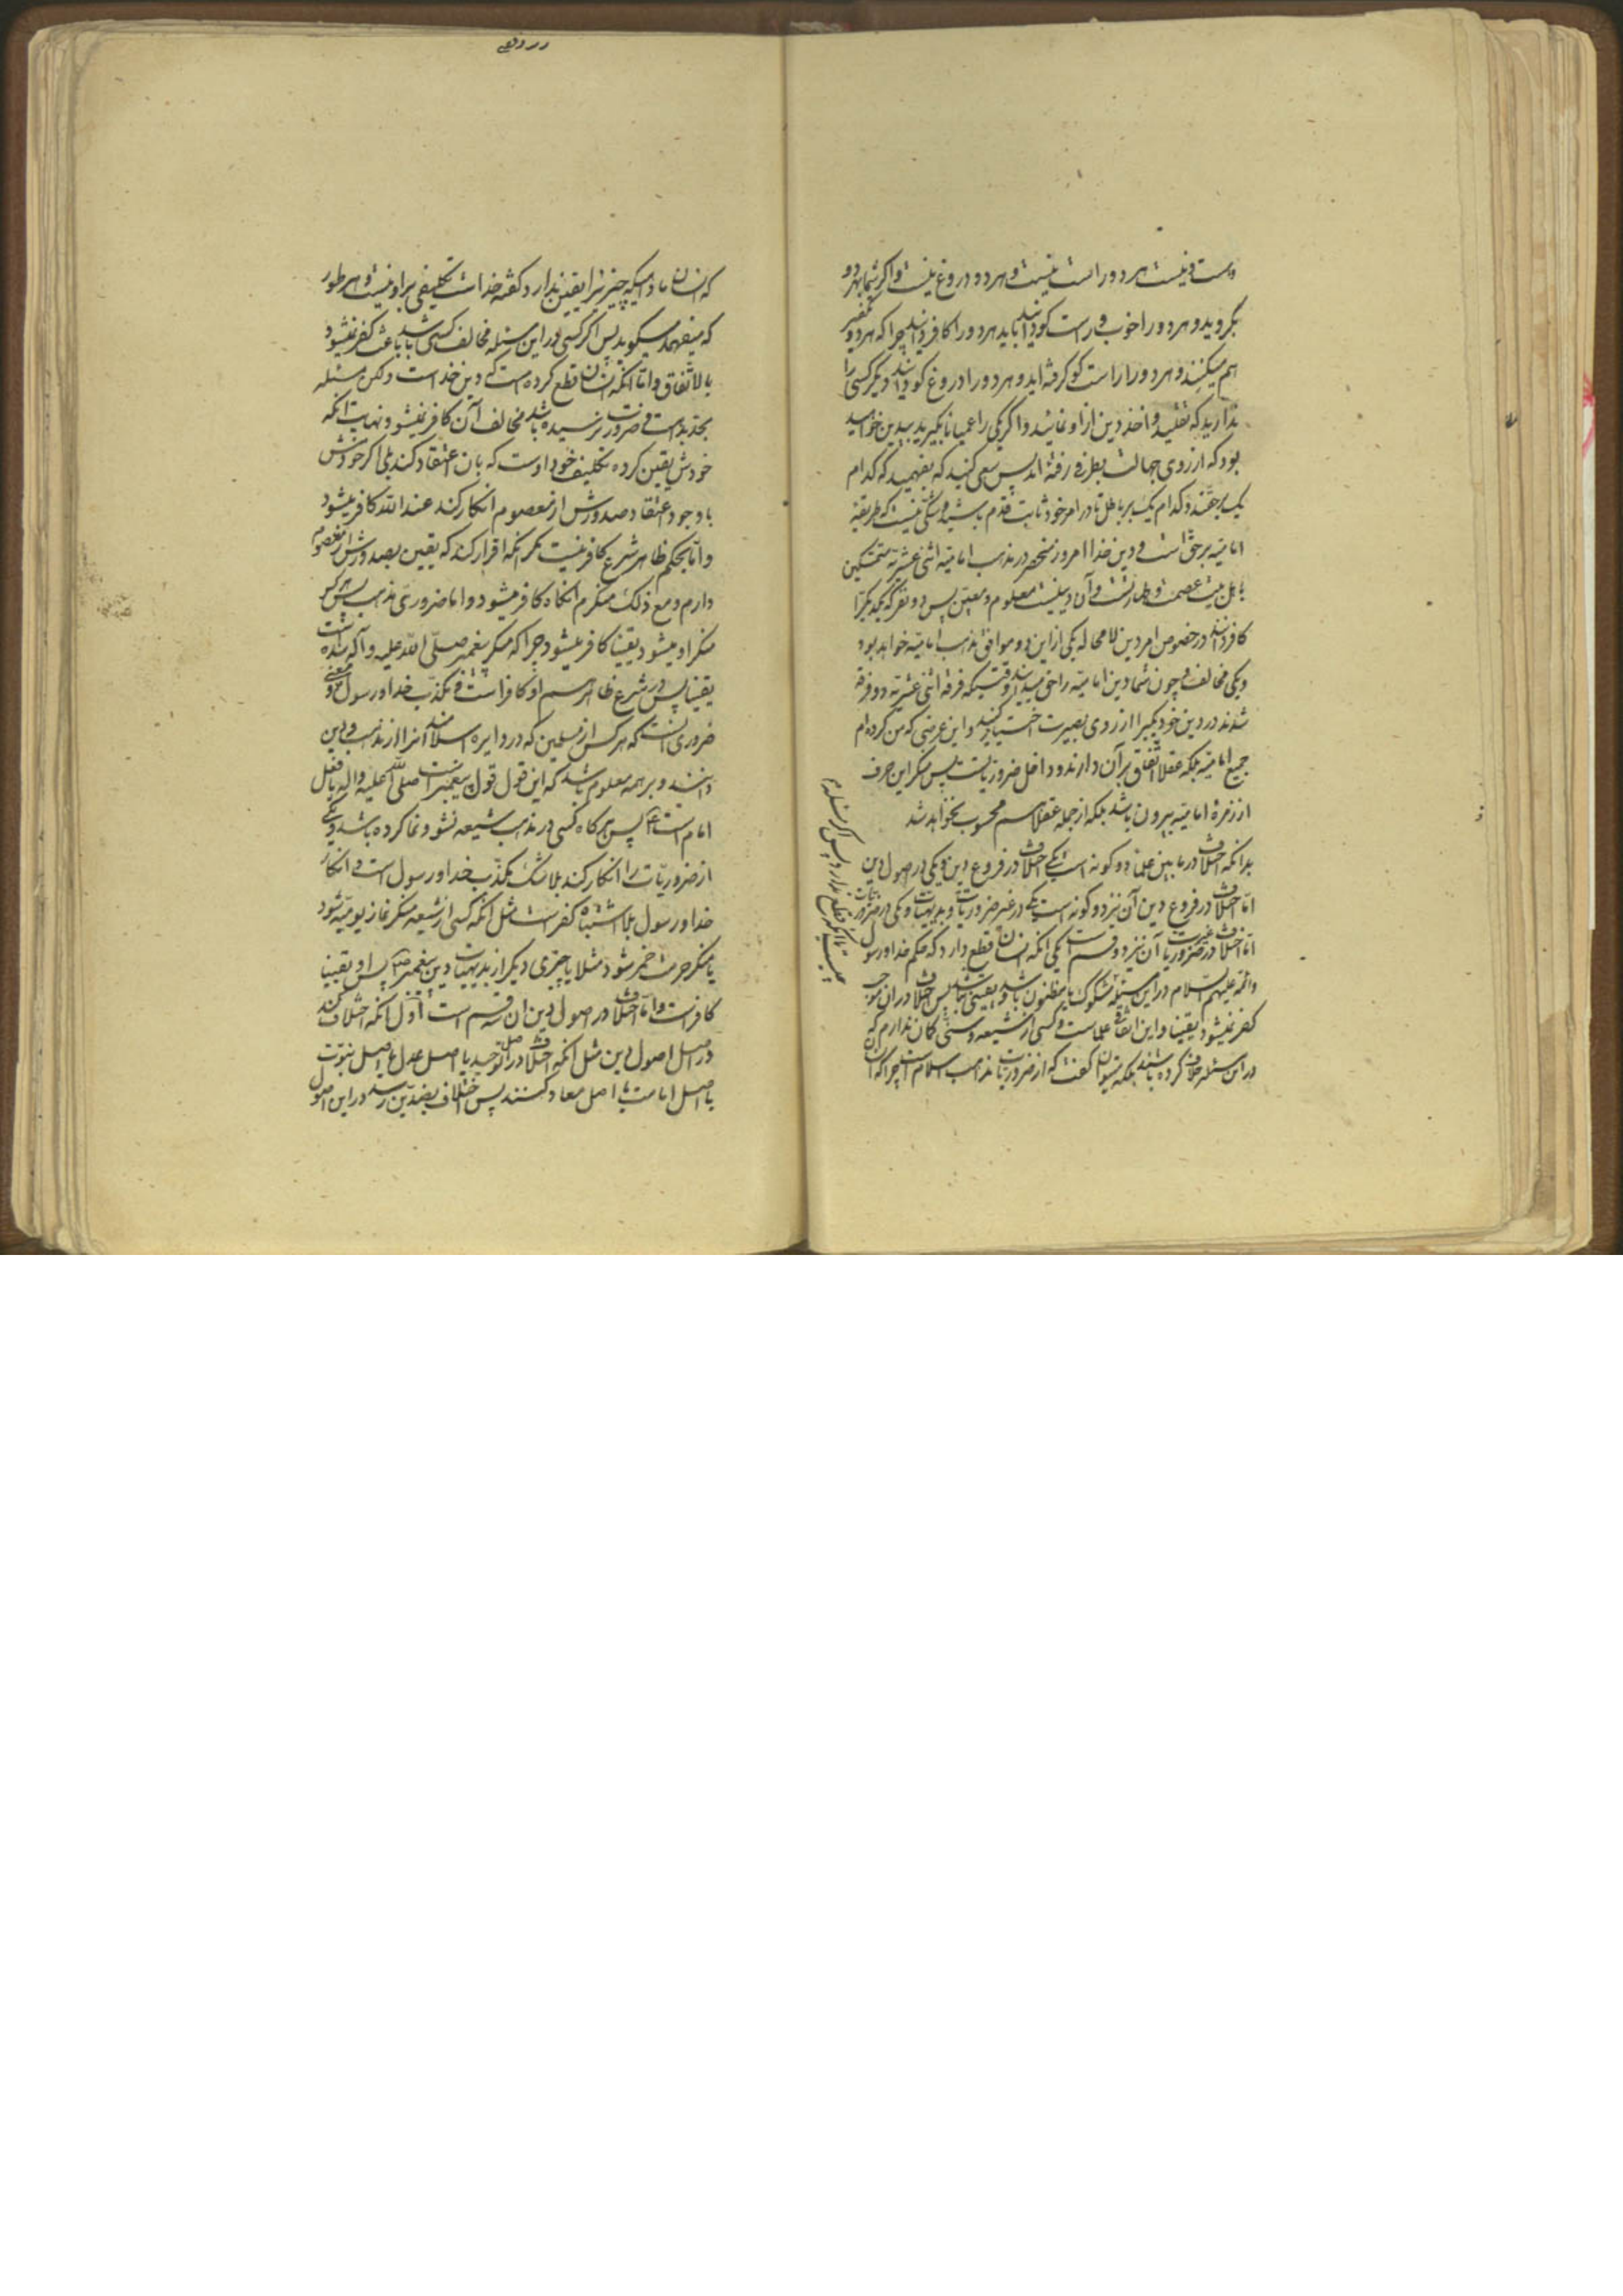 هست و نیست هر دو راست نیست و هر دو دروغ نیست و اگر شما بهر دو
بگروید و هر دو را خوب و راست گو دانید باید هر دو را کافر دانید چرا که هر دو تکفیر
هم میکنند و هر دو را راست گو گرفته اید و هر دو را دروغ گو دانید دیگر کسی را
ندارید که تقلید و اخذ دین از او نمائید و اگر یکی را عمیانا بگیرید بیدین خواهید
بود که از روی جهالت بطرفی رفته اید پس سعی کنید که بفهمید که کدام
یک بر حقند و کدام یک بر باطل تا در امر خود ثابت قدم باشید و شکی نیست که طریقه
امامیه بر حق است و دین خدا امروز منحصر در مذهب امامیه اثنی عشریه متمسکین
باهل بیت عصمت و طهارتست و آن دینیست معلوم و معین پس دو نفر که یکدیگر را
کافر دانند در خصوص امر دین لا محاله یکی از این دو موافق مذهب امامیه خواهد بود
و یکی مخالف و چون شما دین امامیه را حق میدانید از وقتیکه فرقه اثنی عشریه دو فرقه
شدند در دین خود بگیرا از روی بصیرت اختیار کنید و این عرضی که من کرده ام
جمیع امامیه بلکه عقلا اتفاق بر آن دارند و داخل ضروریاتست پس منکر این حرف
از زمره امامیه بیرون باشد بلکه از جمله عقلا هم محسوب نخواهد شد
بدانکه اختلاف در ما بین علماء دو گونه است یکی اختلاف در فروع دین و یکی در اصول دین
اما اختلاف در فروع دین آن نیز دو گونه است یکی در غیر ضروریات و بدیهیات و یکی در ضروریات
اما اختلاف در غیر ضروریات آن نیز دو قسم است یکی آنکه انسان قطع دارد که حکم خدا و رسول
و ائمه علیهم السلام در این مسئله مشکوک یا مظنون باشد و یقینی نباشد پس اختلاف در آن موجب
کفر نمیشود یقینا و این اتفاقی علماست و کسی از شیعه و سنی گمان ندارم که
در این مسئله خلاف کرده باشند بلکه میتوان گفت که از ضروریات مذهب اسلام است چرا که آن
که انسان مادامیکه چیزی را یقین ندارد که گفته خدا است تکلیفی بر او نیست و هر طور
که میفهمد میگوید پس اگر کسی در این مسئله مخالف کسی باشد باعث کفر نمیشود
بالاتفاق و اما آنکه انسان قطع کرده است که دین خداست ولکن مسئله
بحد بداهت و ضرورت نرسیده باشد مخالف آن کافر نمیشود نهایت آنکه
خودش یقین کرده تکلیف خود اوست که بان اعتقاد کند بلی اگر خودش
با وجود اعتقاد صدورش از معصوم انکار کند عند الله کافر میشود
و اما بحکم ظاهر شرع کافر نیست مگر آنکه اقرار کند که یقین بصدورش از معصوم
دارم و مع ذلک منکرم آنگاه کافر میشود و اما ضروری مذهب پس هر کس
منکر او میشود یقینا کافر میشود چرا که منکر پیغمبر صلی الله علیه و آله شده است
یقینا پس در شرع ظاهر هم او کافر است و مکذب خدا و رسول و معنی
ضروری آنست که هر کس از مسلمین که در دایره اسلامند آنرا از مذهب و دین
دانند و بر همه معلوم باشد که این قول قول پیغمبر است صلی الله علیه و اله یا فعل
امام است ع پس هر گاه کسی در مذهب شیعه نشو و نما کرده باشد و یکی
از ضروریات را انکار کند بلا شک مکذب خدا و رسول است و انکار
خدا و رسول بلا اشتباه کفر است مثل آنکه کسی از شیعه منکر نماز یومیه شود
یا منکر حرمت خمر شود مثلا یا چیزی دیگر از بدیهیات دین پیغمبر ص پس او یقینا
کافر است و اما اختلاف در اصول دین آن سه قسم است اول آنکه اختلاف کند
در اصل اصول دین مثل آنکه اختلاف در اصل توحید یا اصل عدل یا اصل نبوت
یا اصل امامت یا اصل معاد کنند پس اختلاف بضدین رسد در این اصول